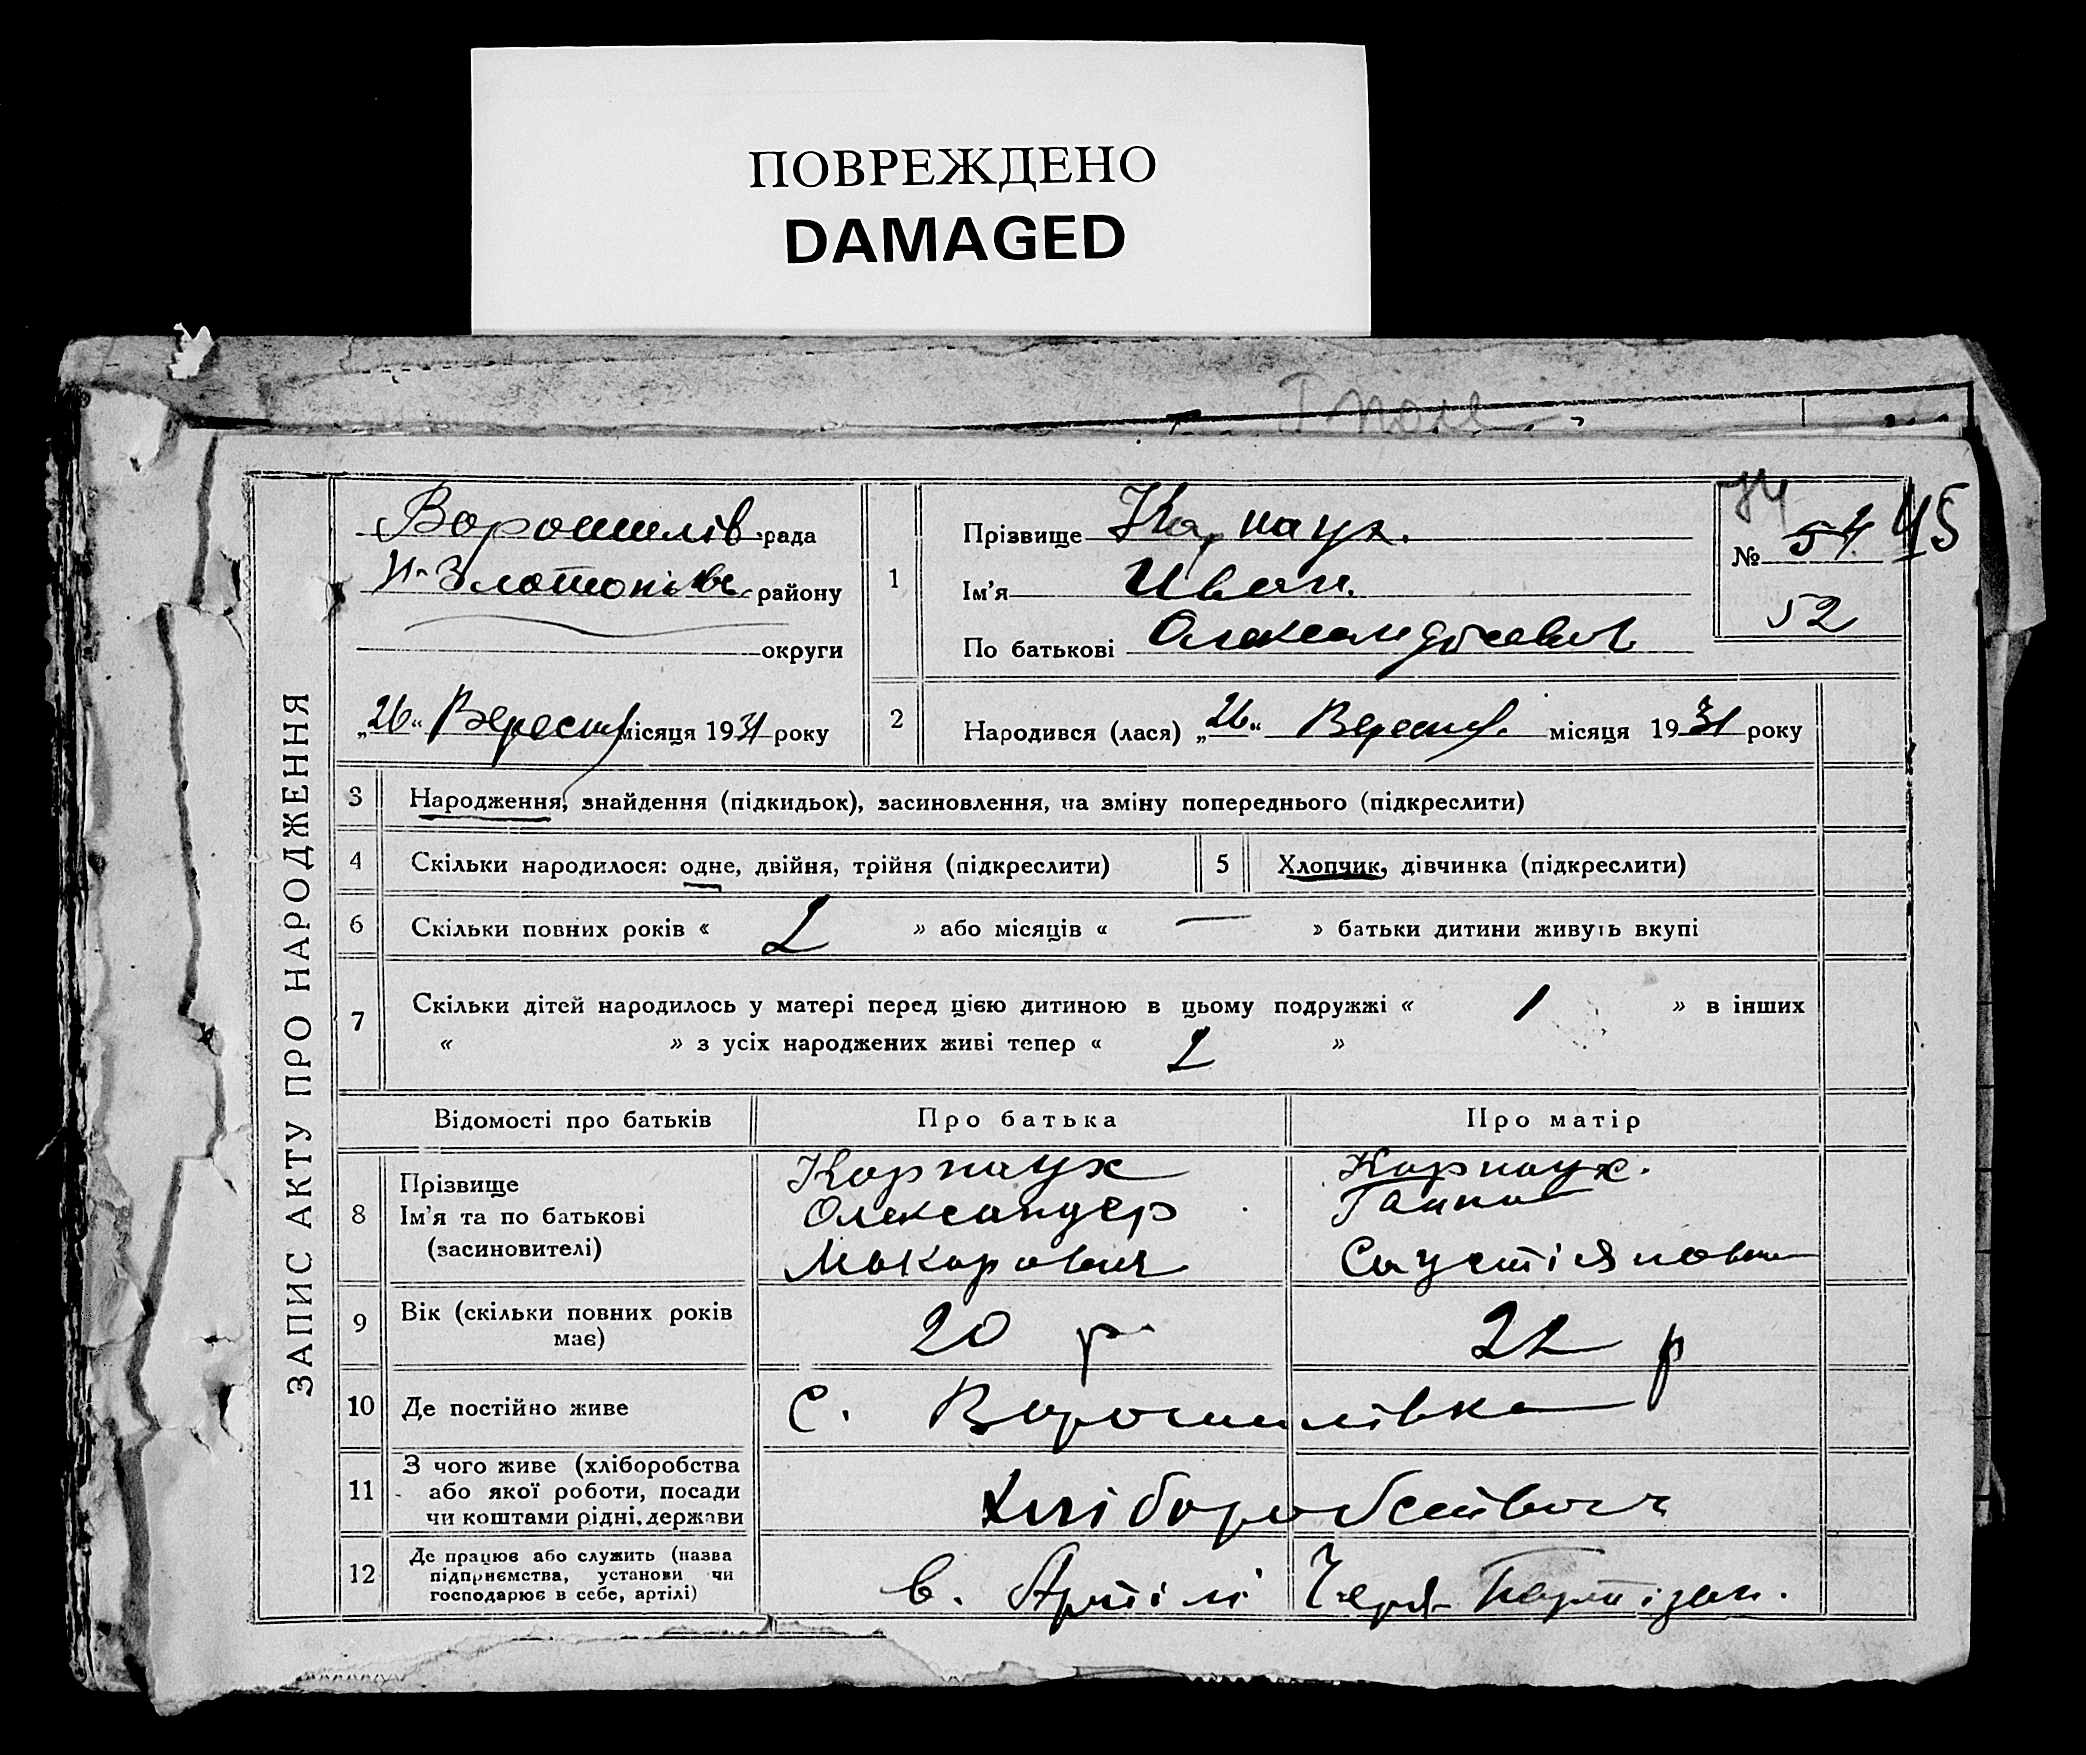 ПОВРЕЖДЕНО
DAMAGED
ЗАПИС АКТУ ПРО НАРОДЖЕННЯ
Ворошилів рада
Н-Злотопілвс. району
округи
„26“ Вересня місяця 1931 року
1
Прізвище Карнаух.
Ім'я Иван.
По батькові Олександрович
№ 54. 45
52
2
Народився (лася) „26“ Вересня. місяця 1931 року
3 Народження, знайдення (підкидьок), засиновлення, на зміну попереднього (підкреслити)
4 Скільки народилося: одне, двійня, трійня (підкреслити) 5 Хлопчик, дівчинка (підкреслити)
6 Скільки повних років « 2 » або місяців « — » батьки дитини живуть вкупі
7 Скільки дітей народилось у матері перед цією дитиною в цьому подружжі « 1 » в інших
« » з усіх народжених живі тепер « 2 »
Відомості про батьків Про батька Про матір
8 Прізвище
Ім'я та по батькові
(засиновителі)
Карнаух
Олександер
Макарович
Карнаух.
Ганна
Саустіяновна
9 Вік (скільки повних років
має)
20 р 22 р
10 Де постійно живе с. Ворошилівка
11 З чого живе (хліборобства
або якої роботи, посади
чи коштами рідні, держави
Хліборобство
12 Де працює або служить (назва
підприємства, установи чи
господарює в себе, артілі)
в. Артілі Черв Партізан.